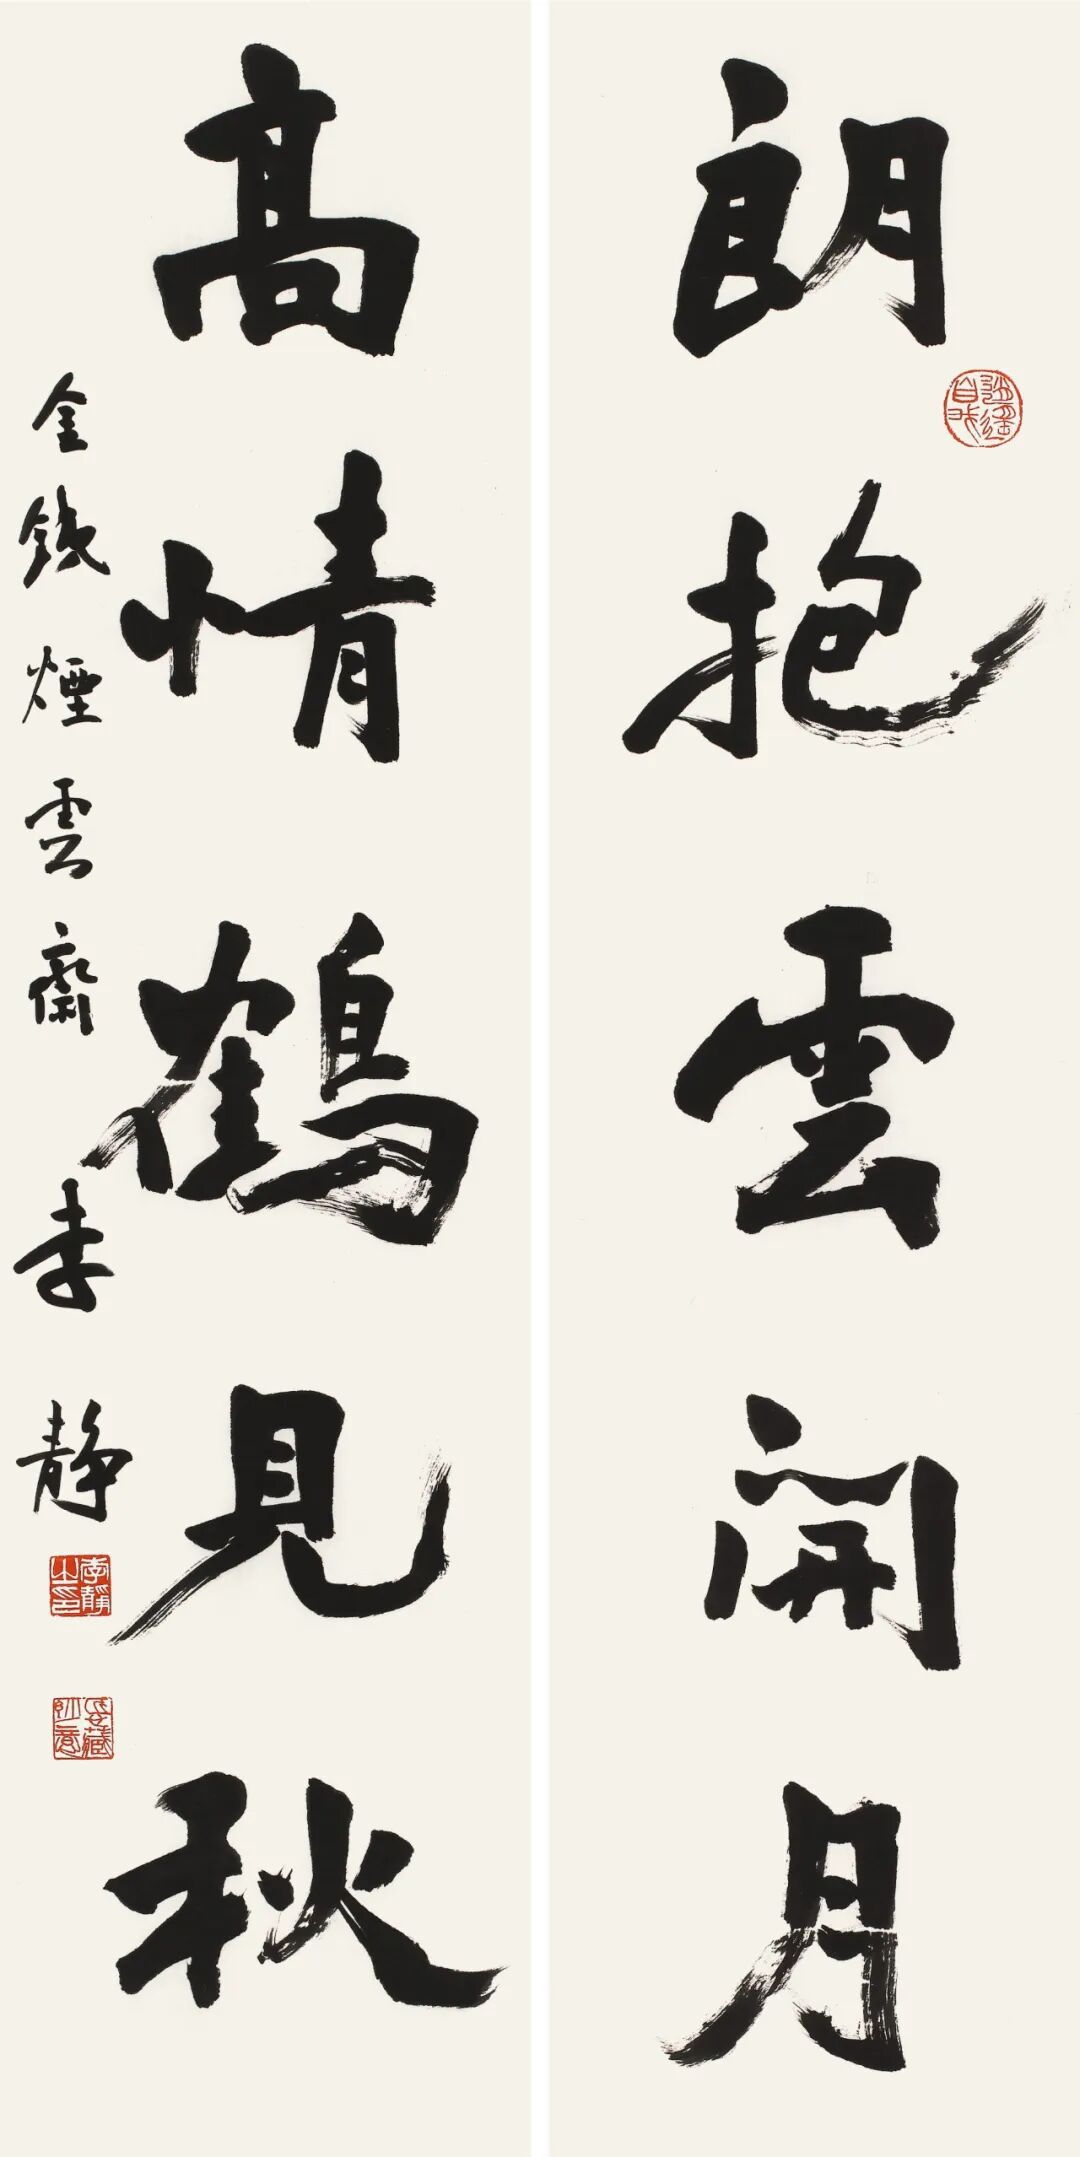 朗抱雲開月
高情鶴見秋
金錢煙雲齋李静
李靜之印